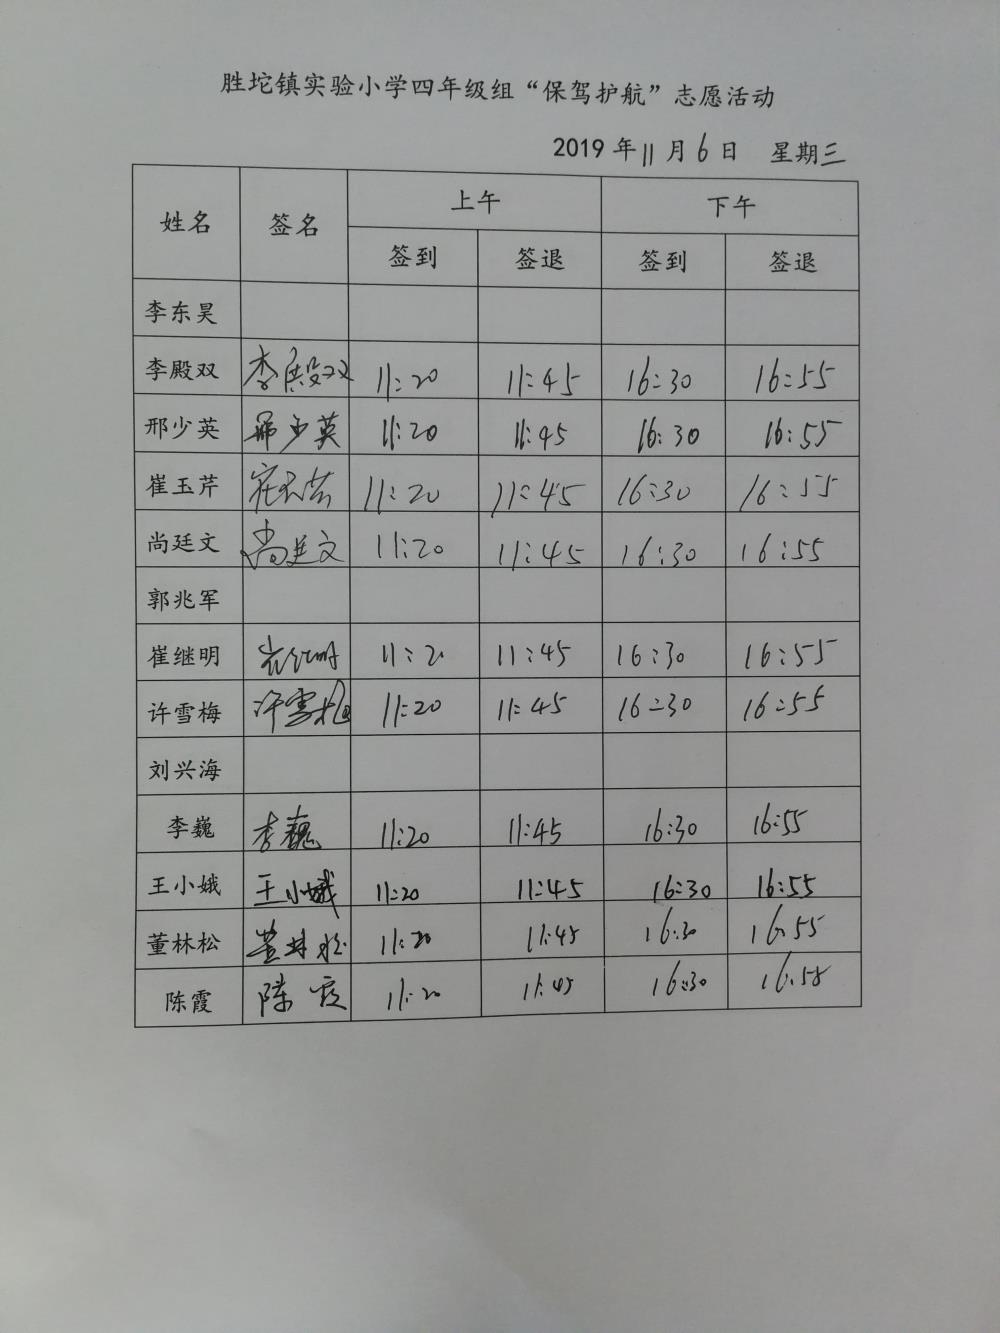 胜坨镇实验小学四年级组“保驾护航”志愿活动
2019年11月6日 星期三
姓名 签名 上午 下午
签到 签退 签到 签退
李东昊
李殿双 李殿双 11:20 11:45 16:30 16:55
邢少英 邢少英 11:20 11:45 16:30 16:55
崔玉芹 崔玉芹 11:20 11:45 16:30 16:55
尚廷文 尚廷文 11:20 11:45 16:30 16:55
郭兆军
崔继明 崔继明 11:20 11:45 16:30 16:55
许雪梅 许雪梅 11:20 11:45 16:30 16:55
刘兴海
李巍 李巍 11:20 11:45 16:30 16:55
王小娥 王小娥 11:20 11:45 16:30 16:55
董林松 董林松 11:20 11:45 16:30 16:55
陈霞 陈霞 11:20 11:45 16:30 16:58